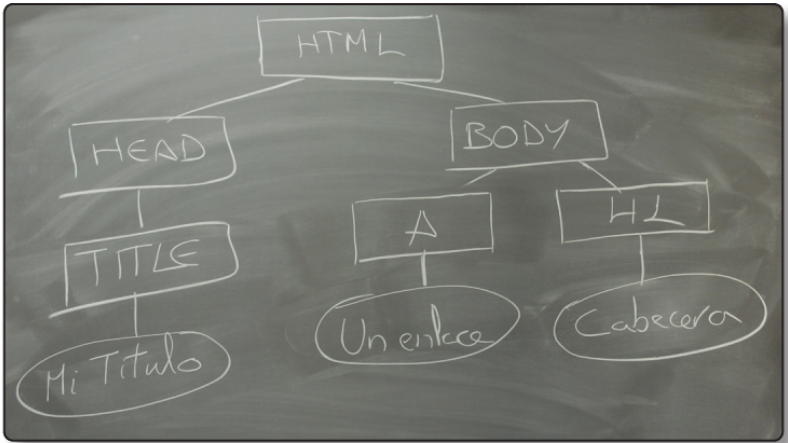 HTML
HEAD
BODY
TITLE
A
H1
Mi Titulo
Un enlace
Cabecera